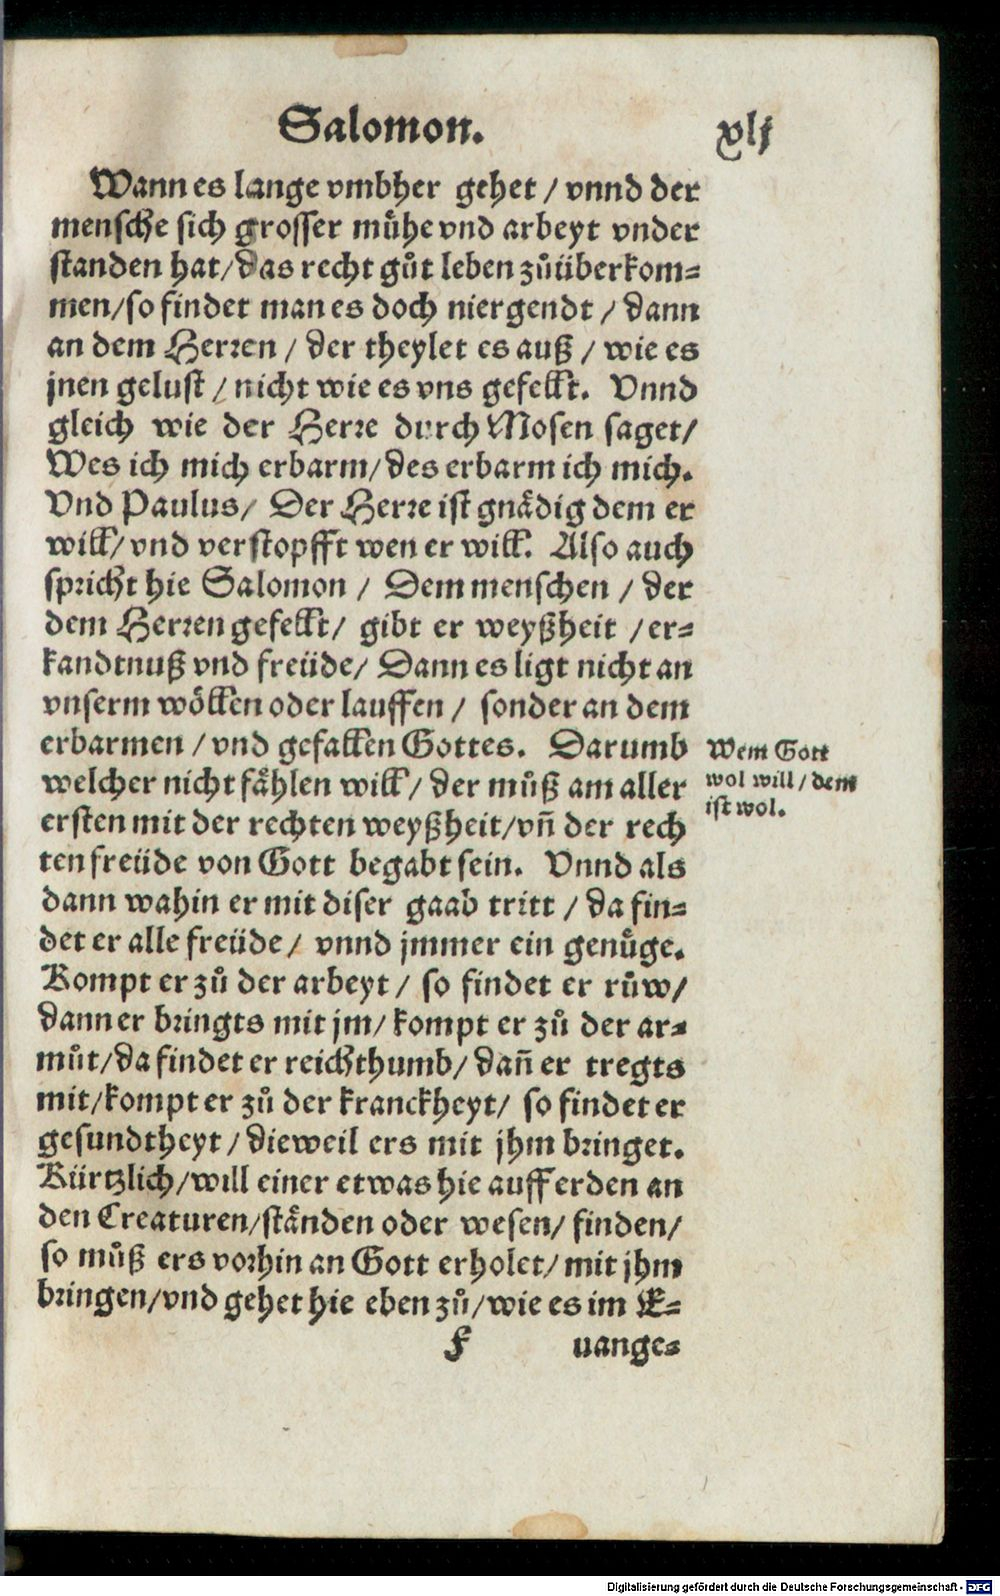 Salomon. xlj
Wann es lange vmbher gehet / vnnd der
mensche sich grosser mühe vnd arbeyt vnder
standen hat/das recht gůt leben zůüberkom=
men/so findet man es doch niergendt / dann
an dem Herren / der theylet es auß / wie es
jnen gelust / nicht wie es vns gefellt. Vnnd
gleich wie der Herre durch Mosen saget/
Wes ich mich erbarm/des erbarm ich mich.
Vnd Paulus/ Der Herre ist gnådig dem er
will/vnd verstopfft wen er will. Also auch
spricht hie Salomon / Dem menschen / der
dem Herren gefellt/ gibt er weyßheit / er=
kandtnuß vnd freüde/ Dann es ligt nicht an
vnserm wöllen oder lauffen / sonder an dem
erbarmen / vnd gefallen Gottes. Darumb
welcher nicht fåhlen will / der můß am aller
ersten mit der rechten weyßheit/vñ der rech
ten freüde von Gott begabt sein. Vnnd als
dann wahin er mit diser gaab tritt / da fin=
det er alle freüde/ vnnd jmmer ein genůge.
Kompt er zů der arbeyt / so findet er růw/
dann er bringts mit jm/ kompt er zů der ar=
můt/da findet er reichthumb/ dañ er tregts
mit/kompt er zů der kranckheyt/ so findet er
gesundtheyt / dieweil ers mit jhm bringet.
Kürtzlich/will einer etwas hie auff erden an
den Creaturen/stånden oder wesen/ finden/
so můß ers vorhin an Gott erholet/ mit jhm
bringen/vnd gehet hie eben zů/wie es im E=
F uange=
Wem Gott
wol will / dem
ist wol.
Digitalisierung gefördert durch die Deutsche Forschungsgemeinschaft - DFG